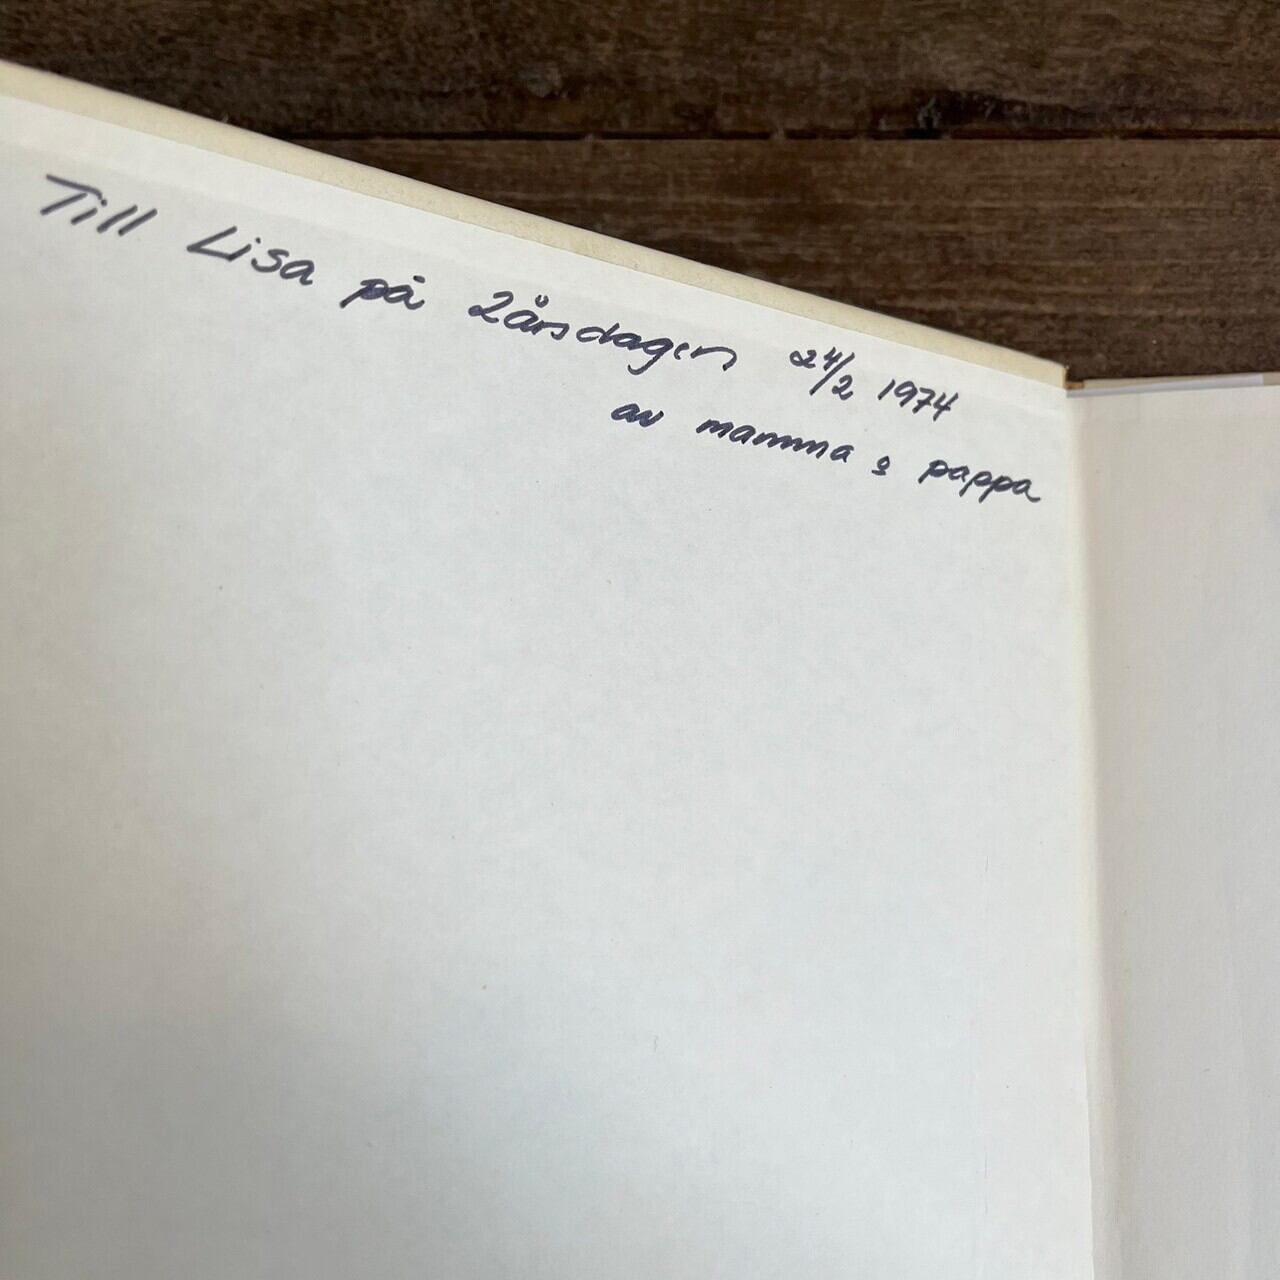 Till Lisa på 2årsdagen 24/2 1974
av mamma o pappa